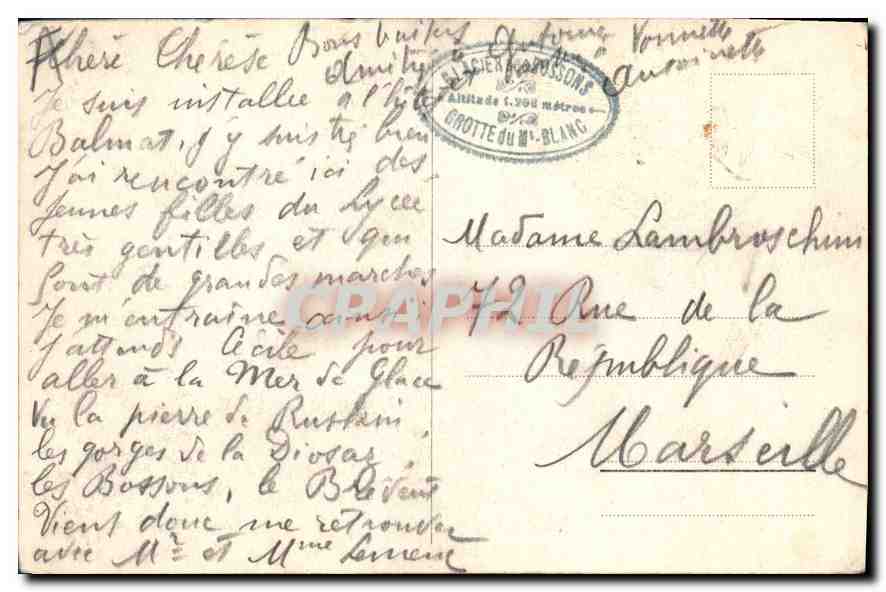 Chère Thérèse Bons baisers Antoine Yonnette
Amitiés Antoinette
Je suis installée à l'hôtel
Balmat, j'y suis très bien
J'ai rencontré ici des
Jeunes filles du Lycée
très gentilles et qui
font de grandes marches
Je m'entraine ainsi
J'attends Cécile pour
aller à la Mer de Glace
Vu la pierre de Ruskin,
les gorges de la Diosaz,
les Bossons, le Brévent
Vient donc me retrouver
avec Mr et Mme
GLACIER des BOSSONS
Altitude 1.200 mètres
GROTTE du Mt-BLANC
Madame Lambroschini
72 Rue de la
République
Marseille
CPAPHIL